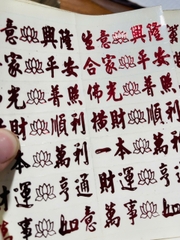 意興隆 生意興隆
家平安 合家平安
光普照 佛光普照
財順利 橫財順利
萬利 一本萬利
財運亨通 財運亨通
萬事如意 萬事如意